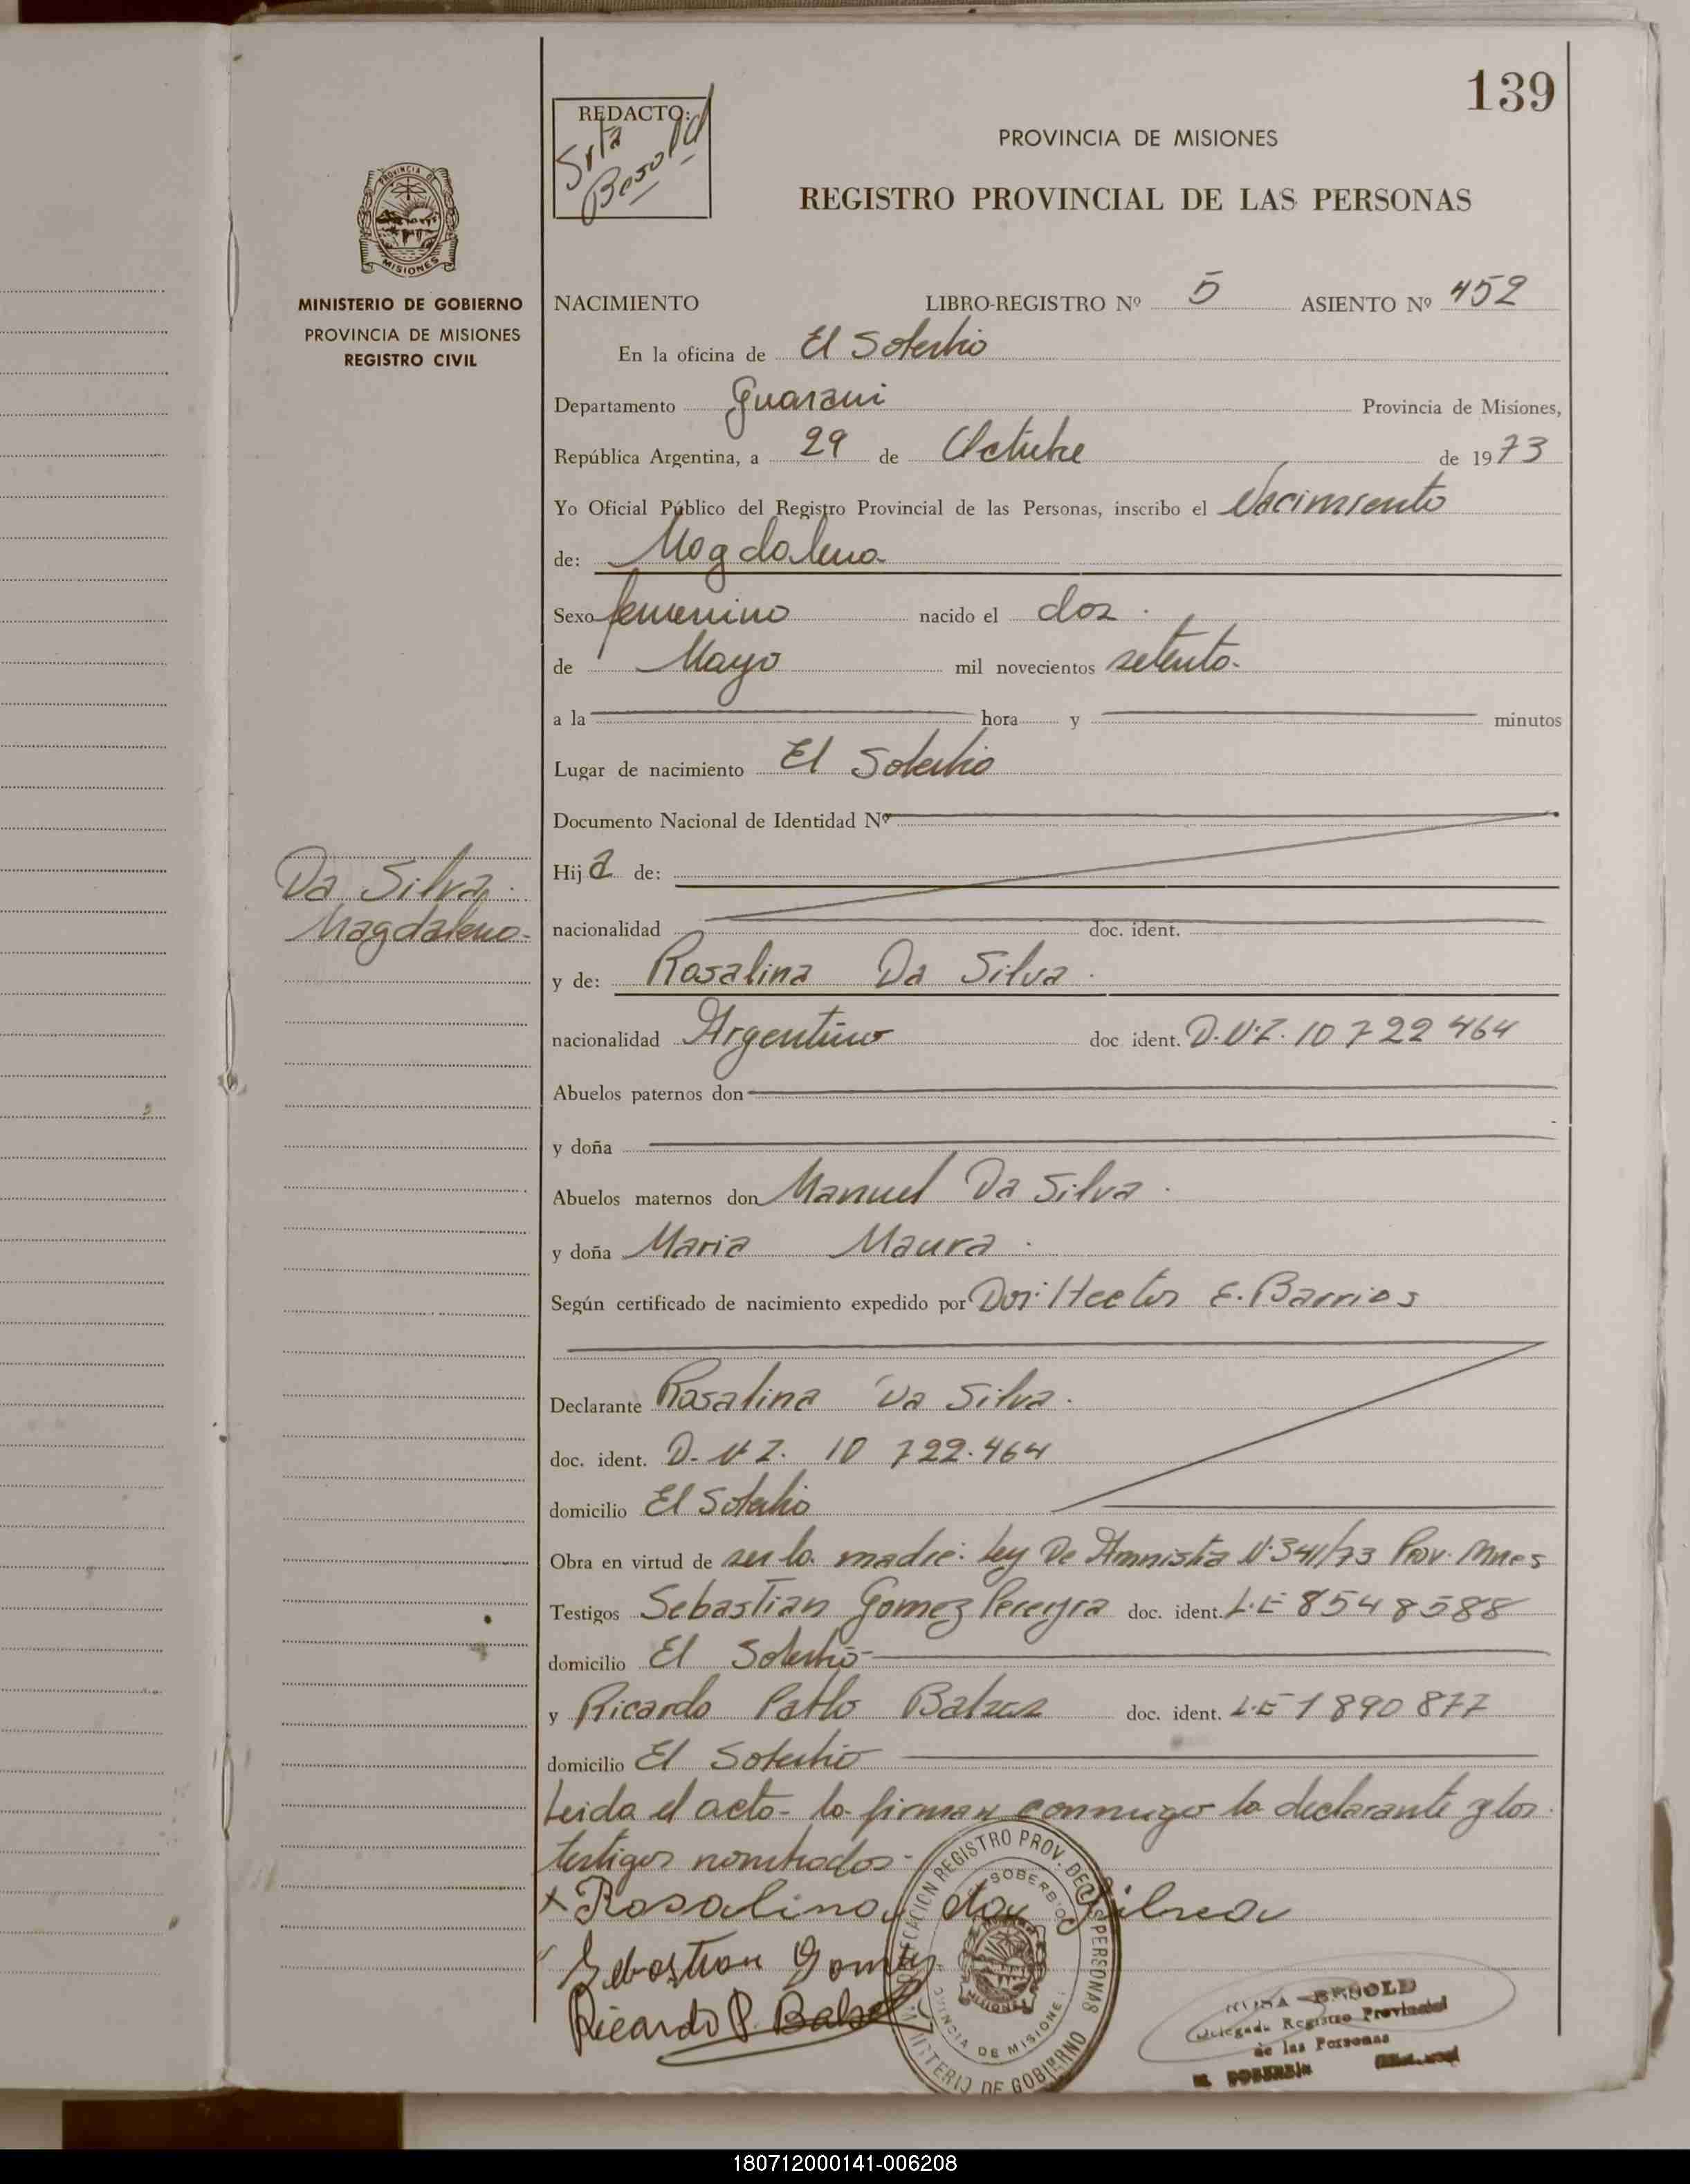 139
REDACTO:
Srta
Besold
PROVINCIA DE MISIONES
REGISTRO PROVINCIAL DE LAS PERSONAS
PROVINCIA DE
MISIONES
MINISTERIO DE GOBIERNO
PROVINCIA DE MISIONES
REGISTRO CIVIL
NACIMIENTO LIBRO-REGISTRO Nº 5 ASIENTO Nº 452
En la oficina de El Soberbio
Departamento Guarani Provincia de Misiones,
República Argentina, a 29 de Octubre de 1973
Yo Oficial Público del Registro Provincial de las Personas, inscribo el Nacimiento
de: Magdalena
Sexo femenino nacido el dos
de Mayo mil novecientos setenta.
a la hora y minutos
Lugar de nacimiento El Soberbio
Documento Nacional de Identidad Nº
Hija de:
Da Silva
Magdalena
nacionalidad doc. ident.
y de: Rosalina Da Silva
nacionalidad Argentina doc. ident. D.N.I. 10 722 464
Abuelos paternos don
y doña
Abuelos maternos don Manuel Da Silva
y doña Maria Maura
Según certificado de nacimiento expedido por Hector E. Barrios
Declarante Rosalina Da Silva
doc. ident. D.N.I. 10 722.464
domicilio El Soberbio
Obra en virtud de ser la madre. Ley De Amnistia N.341/73 Prov. Mnes
Testigos Sebastian Gomez Pereyra doc. ident. L.E 8548588
domicilio El Soberbio
y Ricardo Pablo doc. ident. L.E 1890877
domicilio El Soberbio
Leida el acta la firman conmigo la declarante y los
testigos nombrados.
x Rosalina da Silva
Sebastian Gomez
Ricardo P.
REGISTRO PROV. DE LAS PERSONAS
SOBERBIO
MISIONES
PROVINCIA DE MISIONES
MINISTERIO DE GOBIERNO
ROSA BESOLD
Delegada Registro Provincial
de las Personas
EL SOBERBIO
180712000141-006208